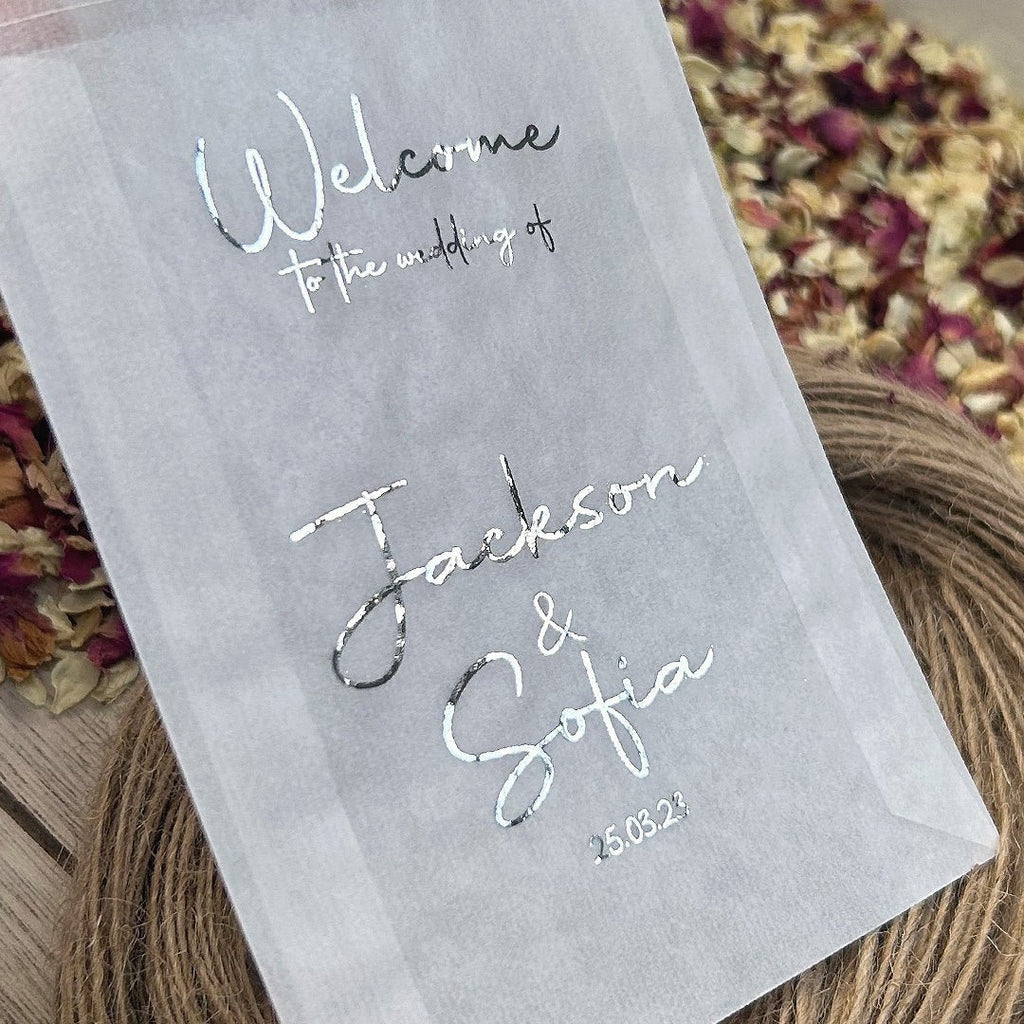 Welcome
to the wedding of
Jackson
&
Sofia
25.03.23